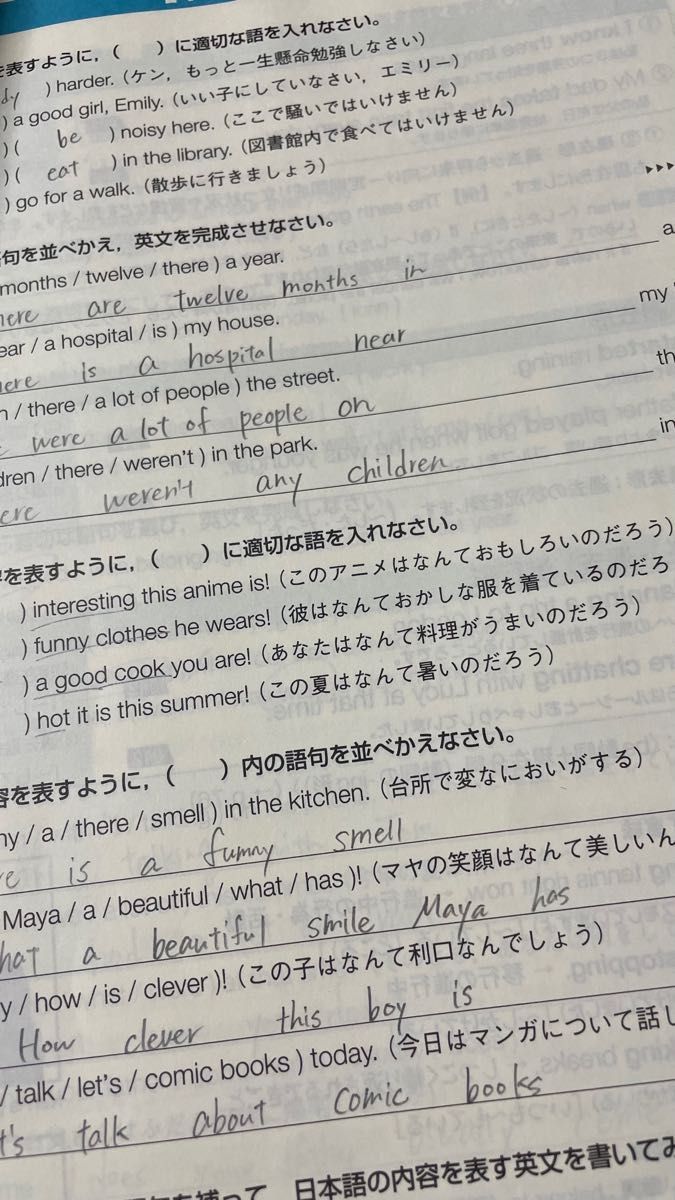 を表すように，（　）に適切な語を入れなさい。
dy ) harder.（ケン，もっと一生懸命勉強しなさい）
) a good girl, Emily.（いい子にしていなさい，エミリー）
) ( be ) noisy here.（ここで騒いではいけません）
) ( eat ) in the library.（図書館内で食べてはいけません）
) go for a walk.（散歩に行きましょう）
語句を並べかえ，英文を完成させなさい。
months / twelve / there ) a year.
here are twelve months in a
ear / a hospital / is ) my house.
here is a hospital near my
n / there / a lot of people ) the street.
e were a lot of people on th
dren / there / weren't ) in the park.
ere weren't any children in
を表すように，（　）に適切な語を入れなさい。
) interesting this anime is!（このアニメはなんておもしろいのだろう）
) funny clothes he wears!（彼はなんておかしな服を着ているのだろ
) a good cook you are!（あなたはなんて料理がうまいのだろう）
) hot it is this summer!（この夏はなんて暑いのだろう）
容を表すように，（　）内の語句を並べかえなさい。
ny / a / there / smell ) in the kitchen.（台所で変なにおいがする）
re is a funny smell
Maya / a / beautiful / what / has )!（マヤの笑顔はなんて美しいん
hat a beautiful smile Maya has
y / how / is / clever )!（この子はなんて利口なんでしょう）
How clever this boy is
/ talk / let's / comic books ) today.（今日はマンガについて話し
t's talk about comic books
を補って，日本語の内容を表す英文を書いてみ